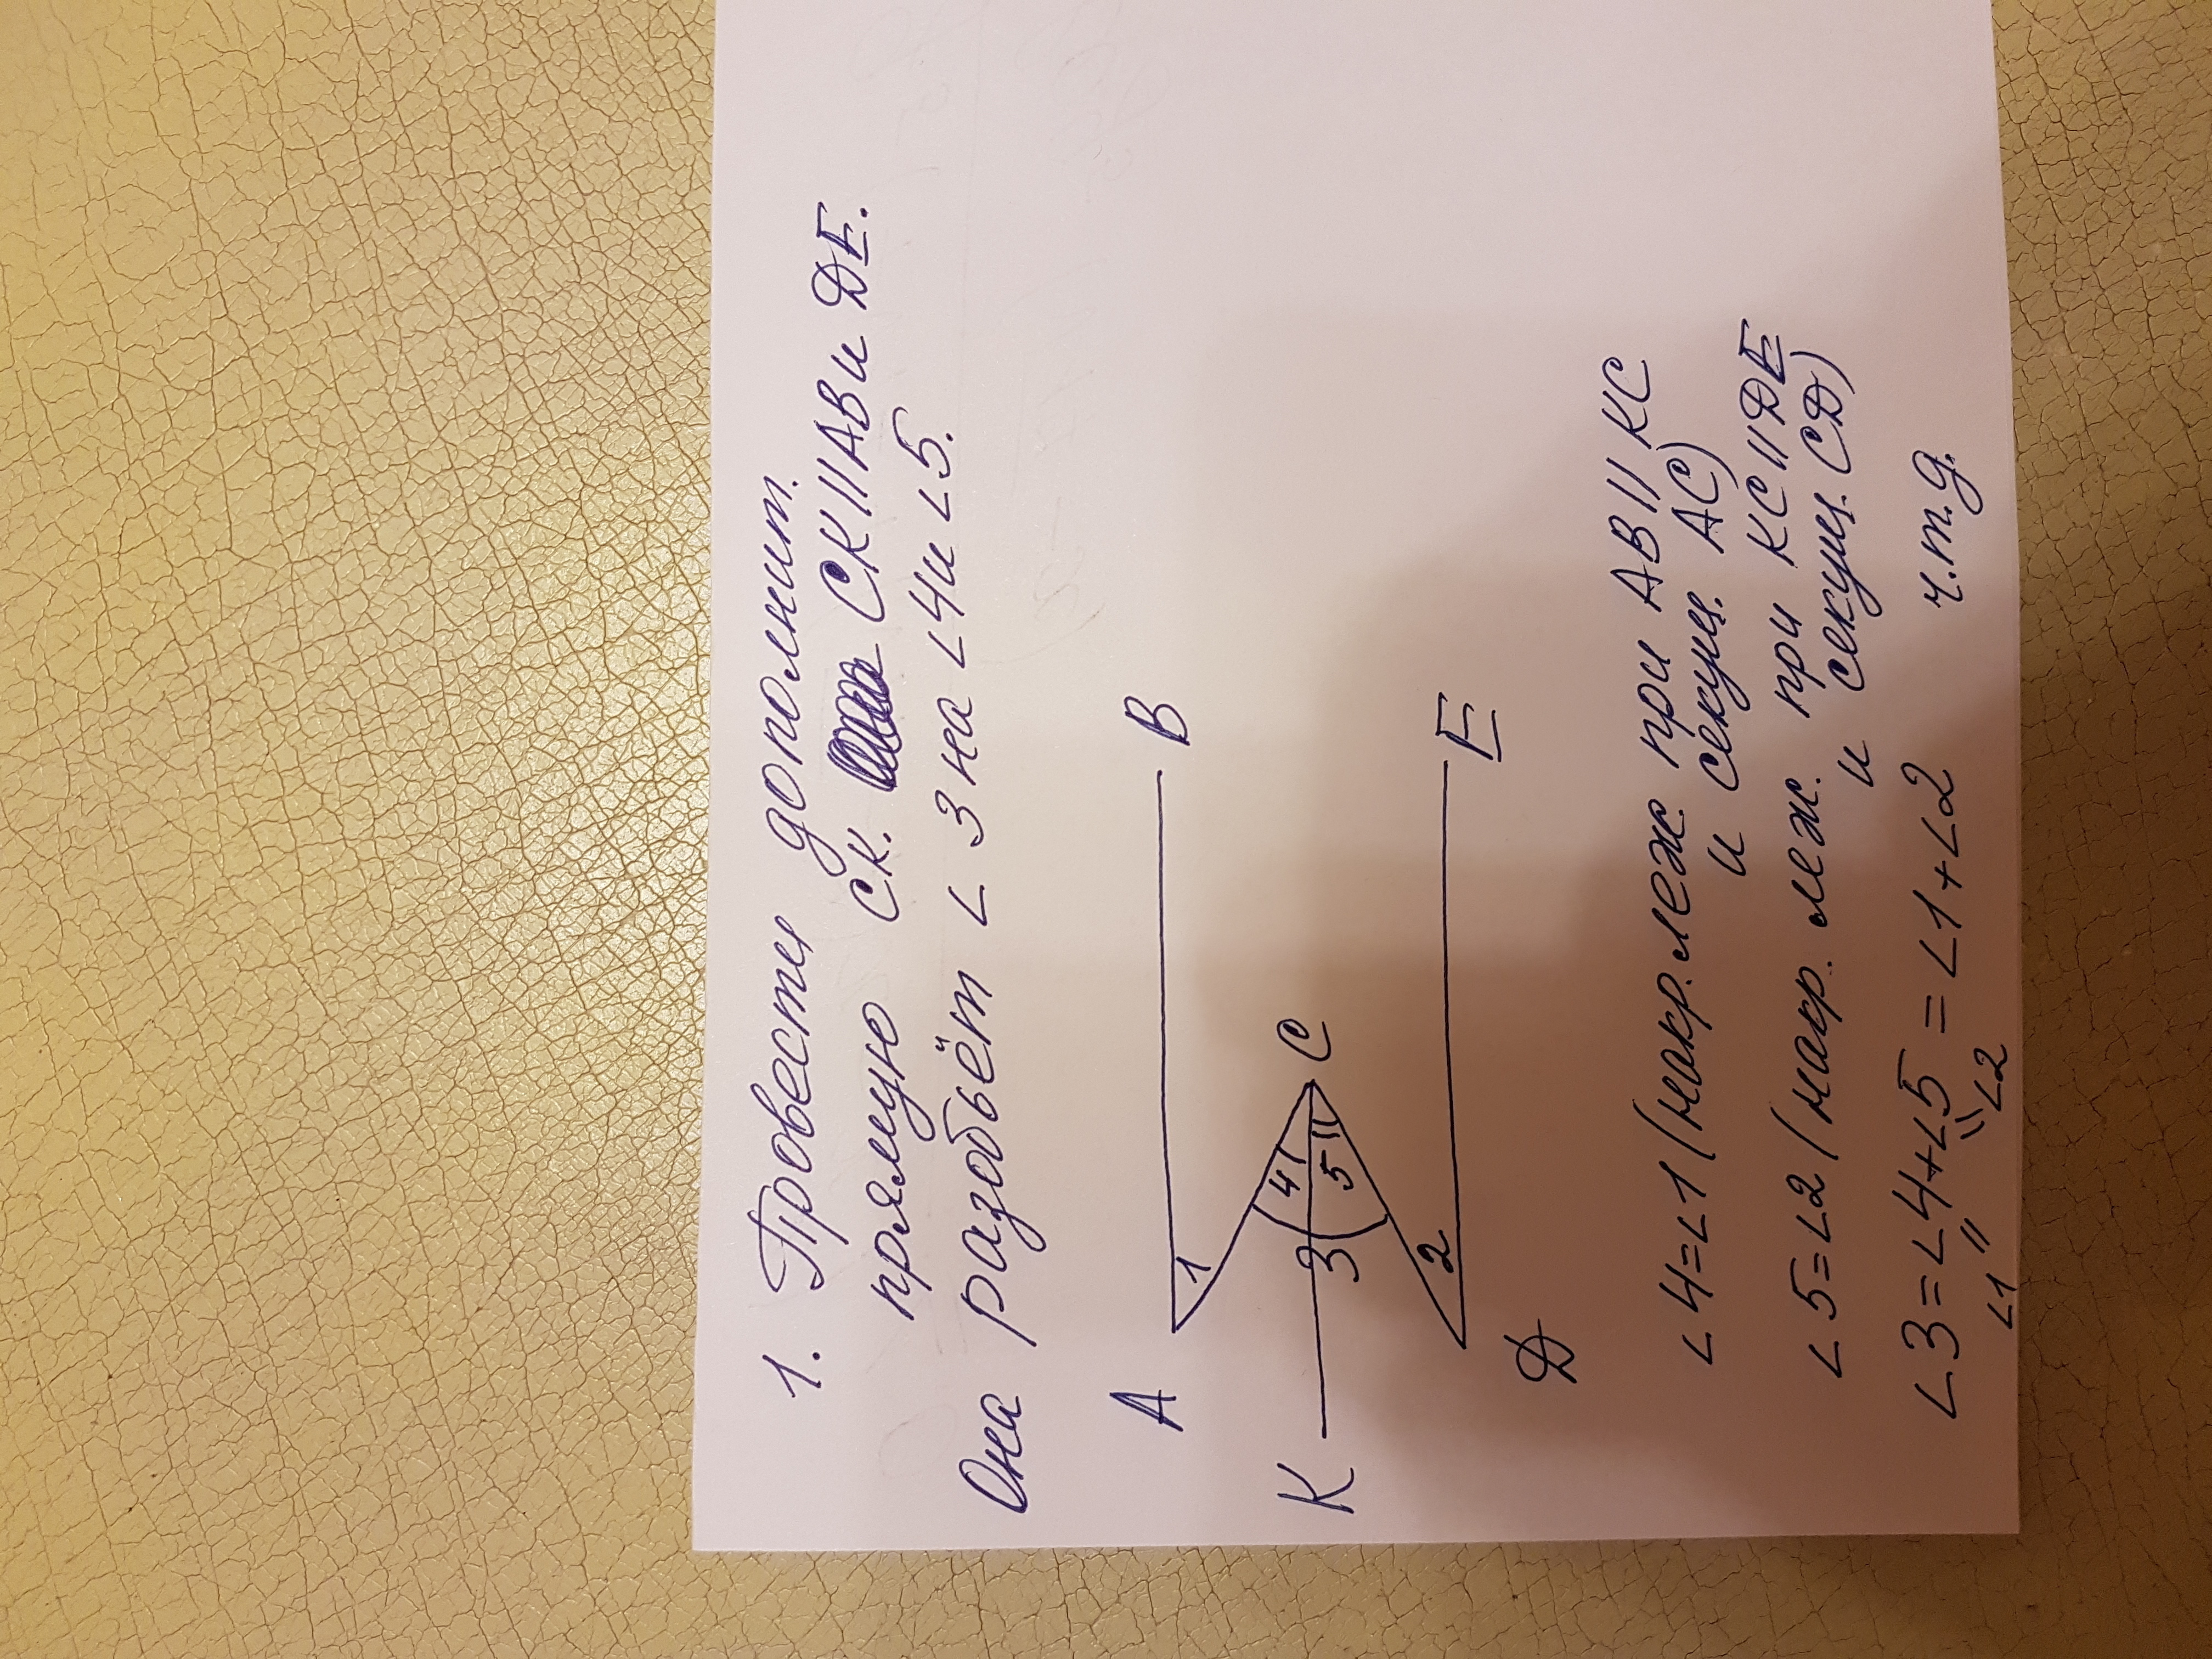 1. Провести дополнит.
прямую СК. СК||АВ и DE.
Она разобьёт ∠3 на ∠4 и ∠5.
A
B
1
K
3
4
5
C
2
D
E
∠4=∠1 (накр. леж при АВ || КС
и секущ. АС)
∠5=∠2 (накр. леж. при КС || DE
и секущ. CD)
∠3=∠4+∠5 = ∠1+∠2
∠1 ∠2
ч.т.д.